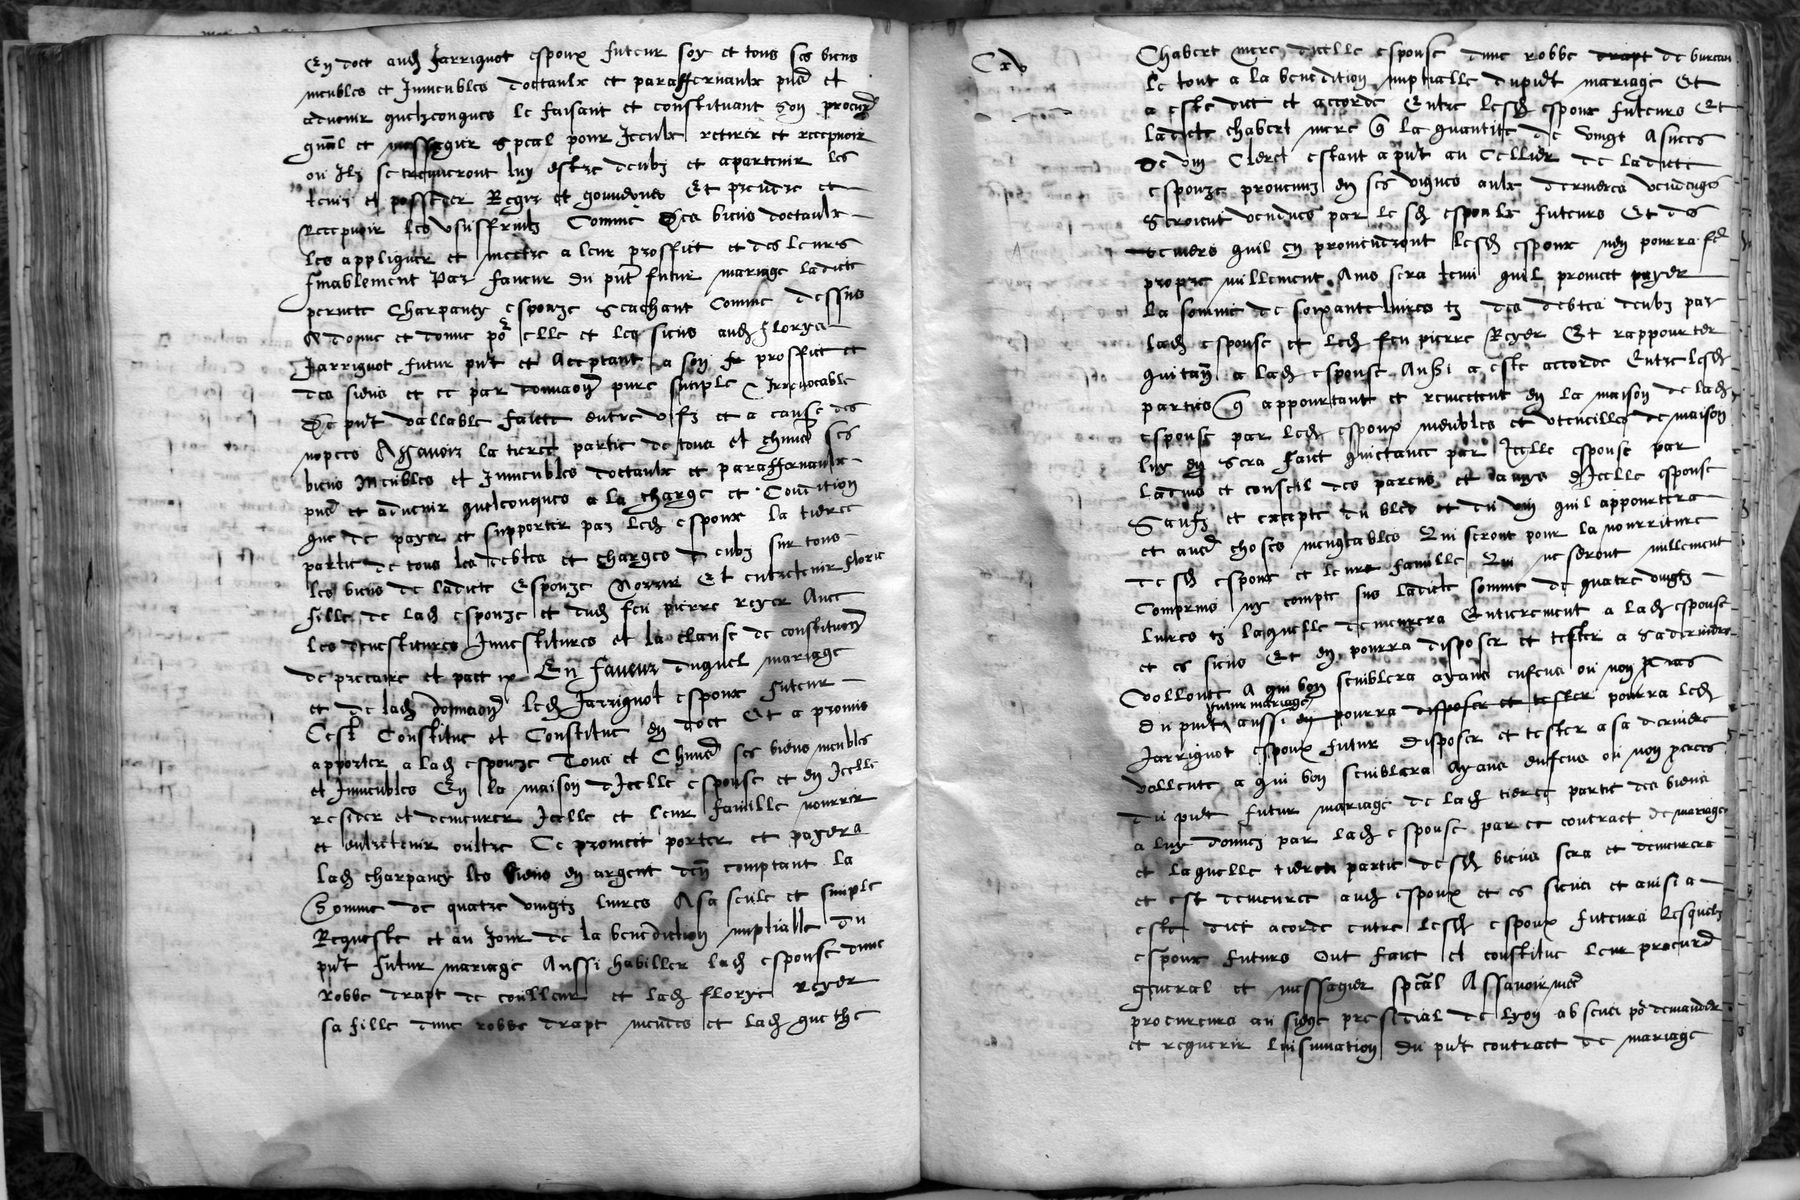 En doct aud Jarriguot espoux futeur soy et tous ses biens
meubles et Inmeubles doctaulx et paraffernaulx pnd et
advenir quelzconques le faisant et constituant son procur
gnal et messagier Special pour Iceulx retirer et recepvoir
ou Ilz se treuveront luy estre deubz et apartenir les
tenir et posseder Regir et gouverner Et prendre et
Recepvoir les usuffruitz Comme Des biens doctaulx
les appliquer et mectre a leur proffict et des leurs
finablement Par faveur du pnt futur mariage ladicte
pernete Charpeney espouze Scachant Comme dessus
A donne et donne por elle et les siens aud florys
Jarriguot futur pnt et Acceptant a son proffict et
des siens et ce par donnaon pure simple & Irrevocable
De pnt vallable faicte entre vifz et a cause des
nopces Assavoir la tierce partie de tous et chuns ses
biens Meubles et Inmeubles doctaulx et paraffernaulx
pns et advenir quelconques a la charge et Condition
que de payer et supporter par led espoux la tierce
partie de tous les debtes et charges deubz sur tous
les biens de ladicte Espouze Norrir Et entretenir florie
fille de lad espouze et dud feu pierre reyer Avec
les devestitures Investitures et la clause de constitution
de precaire et pact ix En faveur duquel mariage
et de lad donnaon led Jarriguot espoux futeur
Cest Constitue et Constitue en doct Et a promis
apporter a lad espouze Tous et Chuns ses biens meubles
et Inmeubles En la maison dIcelle espouse et en Icelle
resider et demeurer Icelle et leur famille nourrir
et entretenir oultre Ce promect porter et payera
lad charpeney les siens en argent comptant la
Somme de quatre vingtz livres A sa seule et simple
Requeste et au Jour de la benediction nuptialle du
pnt futur mariage Aussi habiller lad espouse dune
robbe drapt de coulleur et lad florye reyer
sa fille dune robbe drapt et lad guethe
Cxv
Chabert mere dicelle espouse dune robbe drapt de bureau
le tout a la benedition nuptialle dupnt mariage Et
a este dict et accorde Entre lesd espoux futeurs Et
ladicte chabert mere que la quantite de vingt Asnees
De vin Cleret estant apnt au Cellier de ladicte
espouze provenuz en ses vignes aulx dernieres vendenges
Seroient vendues par lesd espoulx futeurs Et des
deniers quil en proviendront lesd espoux nen pourra fe
propre nullement Ains sera tenu quil promect payer
la somme de soixante livres tz des debtes deubz par
lad espouse et led feu pierre Reyer Et rappourter
quitan a lad espouse Aussi a este accorde Entre lesd
parties que appourtant et remectent en la maison de lad
espouse par led espoux meubles et uteneilles de maison
luy en Sera faict quictance par Icelle espouse par
ladvis et conseil des parens et amys dIcelle espouse
Saufz et excepte du bled et du vin quil appourtera
et aues choses mengeables Qui seront pour la nourriture
desd espoux et leurs famille Qui ne seront nullement
Comprins ny compte sus ladicte somme de quatre vingtz
livres tz laquelle demeurera Entierement a lad espouse
et es siens Et en pourra disposer et tester a sa derniere
Vollonte A qui bon semblera ayans enfens ou non
futur mariage
du pnt aussi en pourra disposer et tester pourra led
Jarriguot espoux futur disposer et tester a sa derniere
vollente a qui bon semblera Ayans enfens ou non
du pnt futur mariage de lad tierce partie des biens
a luy donnez par lad espouse par ce contract de mariage
et laquelle tierce partie desd biens sera et demeurera
et est demeuree aud espoux et es siens et aussi a
este dict acorde entre lesd espoux futeurs Lesquelz
espoux futurs Ont faict et constitue leur procurd
general et messagier special Assavoir mes
procureurs au siege presedial de lyon absens por demander
et requerir linsinuation du pnt contract de mariage